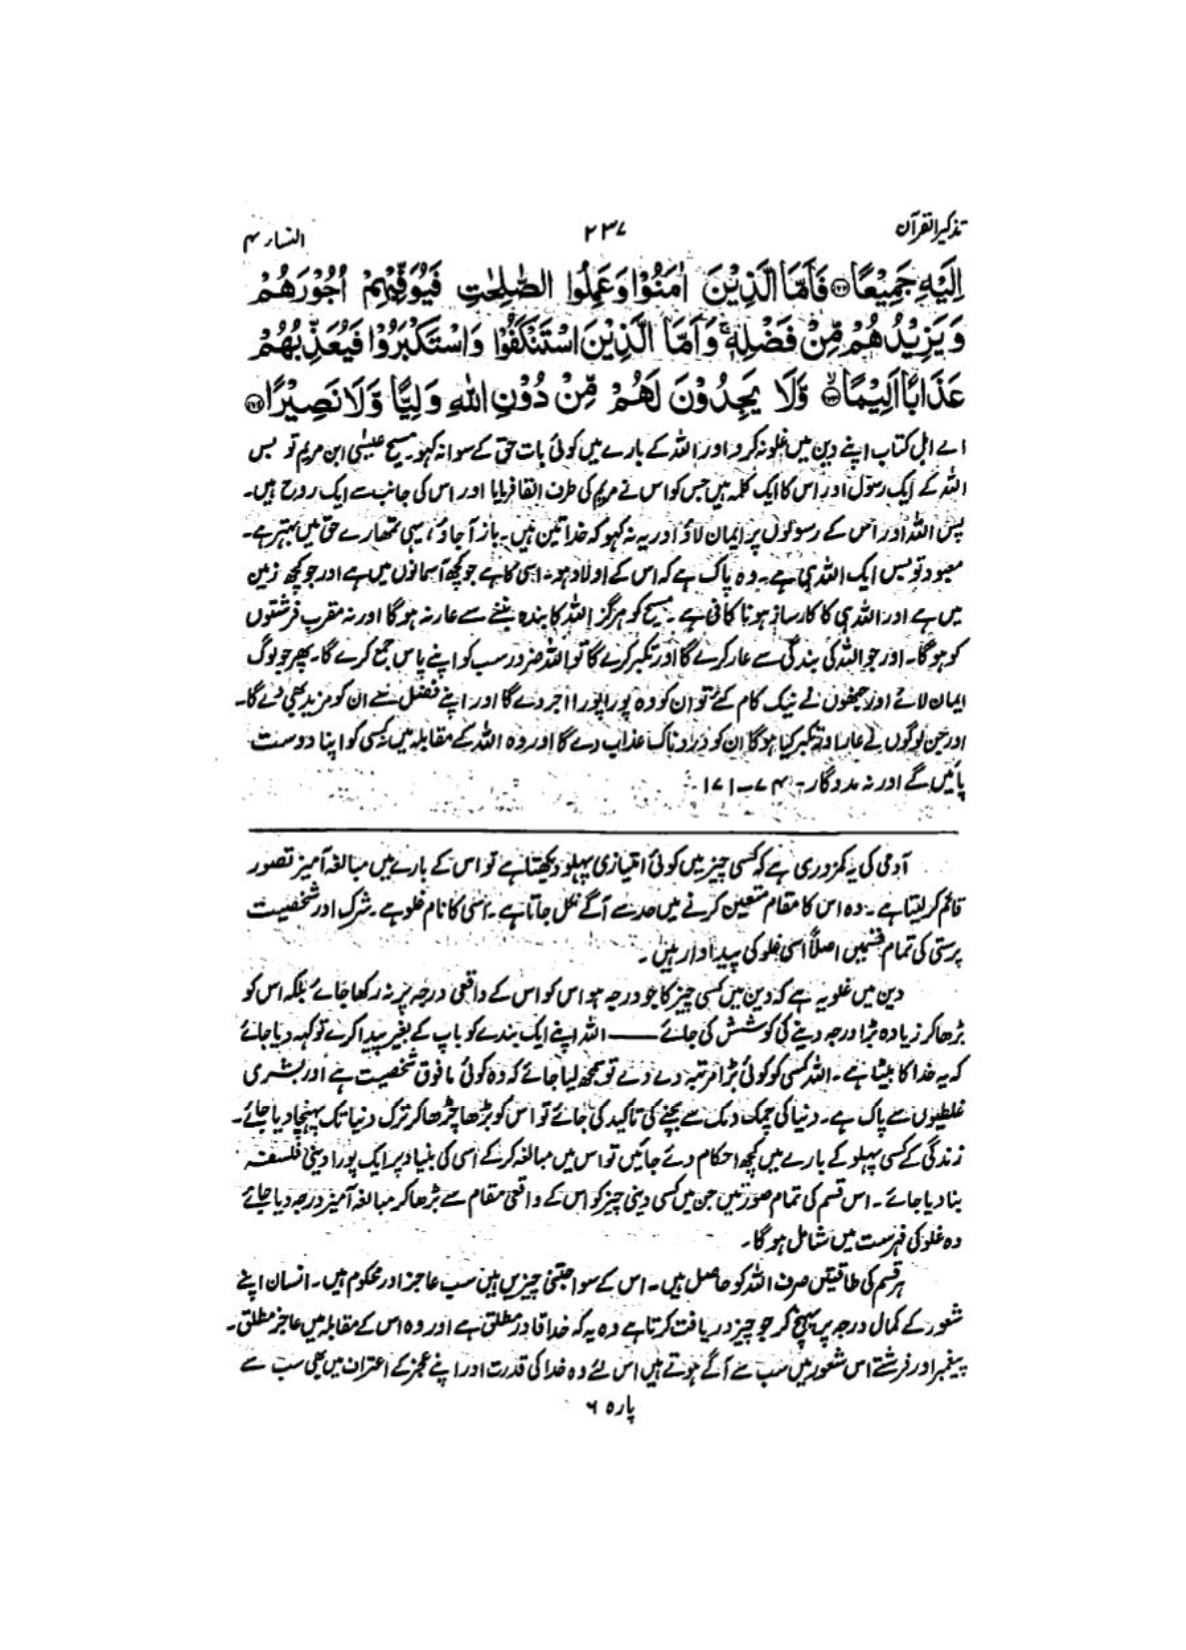 تذکیر القرآن
۲۳۷
النساء ۴
اِلَيْهِ جَمِيْعًا ۝۱۷۲ فَاَمَّا الَّذِيْنَ اٰمَنُوْا وَعَمِلُوا الصّٰلِحٰتِ فَيُوَفِّيْهِمْ اُجُوْرَهُمْ
وَيَزِيْدُهُمْ مِّنْ فَضْلِهٖ ۚ وَاَمَّا الَّذِيْنَ اسْتَنْكَفُوْا وَاسْتَكْبَرُوْا فَيُعَذِّبُهُمْ
عَذَابًا اَلِيْمًا ۙ وَّلَا يَجِدُوْنَ لَهُمْ مِّنْ دُوْنِ اللّٰهِ وَلِيًّا وَّلَا نَصِيْرًا ۝۱۷۳
اے اہل کتاب اپنے دین میں غلو نہ کرو اور اللہ کے بارے میں کوئی بات حق کے سوا نہ کہو۔ مسیح عیسیٰ ابن مریم تو بس
اللہ کے ایک رسول اور اس کا ایک کلمہ ہیں جس کو اس نے مریم کی طرف القا فرمایا اور اس کی جانب سے ایک روح ہیں۔
پس اللہ اور اس کے رسولوں پر ایمان لاؤ اور یہ نہ کہو کہ خدا تین ہیں۔ باز آجاؤ، یہی تمھارے حق میں بہتر ہے۔
معبود تو بس ایک اللہ ہی ہے۔ وہ پاک ہے کہ اس کے اولاد ہو۔ اسی کا ہے جو کچھ آسمانوں میں ہے اور جو کچھ زمین
میں ہے اور اللہ ہی کا کارساز ہونا کافی ہے۔ مسیح کو ہرگز اللہ کا بندہ بننے سے عار نہ ہوگا اور نہ مقرب فرشتوں
کو ہوگا۔ اور جو اللہ کی بندگی سے عار کرے گا اور تکبر کرے گا تو اللہ ضرور سب کو اپنے پاس جمع کرے گا۔ پھر جو لوگ
ایمان لائے اور جنھوں نے نیک کام کئے تو ان کو وہ پورا پورا اجر دے گا اور اپنے فضل سے ان کو مزید بھی دے گا۔
اور جن لوگوں نے عار اور تکبر کیا ہوگا ان کو دردناک عذاب دے گا اور وہ اللہ کے مقابلہ میں کسی کو اپنا دوست
پائیں گے اور نہ مددگار۔ ۷۴ ـ ۱۷۱
آدمی کی یہ کمزوری ہے کہ کسی چیز میں کوئی امتیازی پہلو دیکھتا ہے تو اس کے بارے میں مبالغہ آمیز تصور
قائم کر لیتا ہے۔ وہ اس کا مقام متعین کرنے میں حد سے آگے نکل جاتا ہے۔ اسی کا نام غلو ہے۔ شرک اور شخصیت
پرستی کی تمام قسمیں اصلاً اسی غلو کی پیداوار ہیں۔
دین میں غلو یہ ہے کہ دین میں کسی چیز کا جو درجہ ہو اس کو اس کے واقعی درجہ پر نہ رکھا جائے بلکہ اس کو
بڑھا کر زیادہ بڑا درجہ دینے کی کوشش کی جائے ـــــ اللہ اپنے ایک بندے کو باپ کے بغیر پیدا کرے تو کہہ دیا جائے
کہ یہ خدا کا بیٹا ہے۔ اللہ کسی کو کوئی بڑا مرتبہ دے دے تو سمجھ لیا جائے کہ وہ کوئی مافوق شخصیت ہے اور بشری
غلطیوں سے پاک ہے۔ دنیا کی چمک دمک سے بچنے کی تاکید کی جائے تو اس کو بڑھا چڑھا کر ترک دنیا تک پہنچا دیا جائے۔
زندگی کے کسی پہلو کے بارے میں کچھ احکام دئے جائیں تو اس میں مبالغہ کر کے اسی کی بنیاد پر ایک پورا دینی فلسفہ
بنا دیا جائے۔ اس قسم کی تمام صورتیں جن میں کسی دینی چیز کو اس کے واقعی مقام سے بڑھا کر مبالغہ آمیز درجہ دیا جائے
وہ غلو کی فہرست میں شامل ہوگا۔
ہر قسم کی طاقتیں صرف اللہ کو حاصل ہیں۔ اس کے سوا جتنی چیزیں ہیں سب عاجز اور محکوم ہیں۔ انسان اپنے
شعور کے کمال درجہ پر پہنچ کر جو چیز دریافت کرتا ہے وہ یہ کہ خدا قادر مطلق ہے اور وہ اس کے مقابلہ میں عاجز مطلق۔
پیغمبر اور فرشتے اس شعور میں سب سے آگے ہوتے ہیں اس لئے وہ خدا کی قدرت اور اپنے عجز کے اعتراف میں بھی سب سے
پارہ ۶